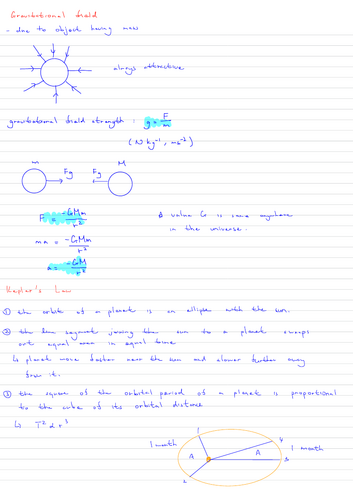 Gravitational field
- due to object having mass
always attractive
gravitational field strength : g = F/m
(N kg⁻¹, ms⁻²)
m M
Fg Fg
F = -GMm/r²
* value G is same anywhere
in the universe.
ma = -GMm/r²
a = -GM/r²
Kepler's Law
① the orbit of a planet is an ellipse with the sun.
② the line segment joining the sun to a planet sweeps
out equal area in equal time
↳ planet move faster near the sun and slower further away
from it.
③ the square of the orbital period of a planet is proportional
to the cube of its orbital distance
↳ T² α r³
1
1 month A A 4 1 month
3
2